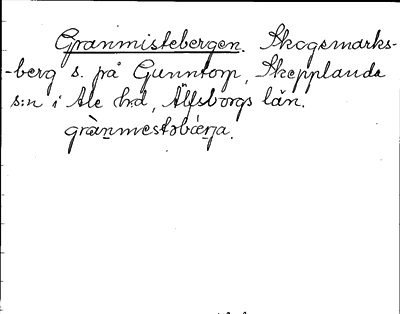 Granmistebergen. Skogsmarks-
-berg s. på Gunntorp, Skepplanda
s:n i Ale hd, Älfsborgs län.
grànmestəbǽrja.